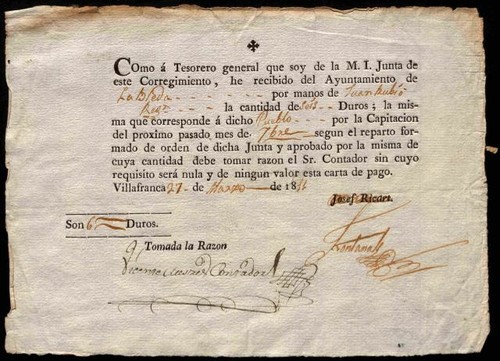 ✠
COMO á Tesorero general que soy de la M. I. Junta de
este Corregimiento, he recibido del Ayuntamiento de
La Bleda por manos de Juan Rubió
Regr la cantidad de seis Duros; la mis
ma que corresponde á dicho Pueblo por la Capitacion
del proximo pasado mes de 7bre segun el reparto for-
mado de orden de dicha Junta y aprobado por la misma
de cuya cantidad debe tomar razon el Sr. Contador sin cuyo
requisito será nula y de ningun valor esta carta de pago.
Villafranca 27 de Marzo de 1811
Josef Ricart.
Son 6 Duros.
Fontanals
Tomada la Razon
Vicente Contador